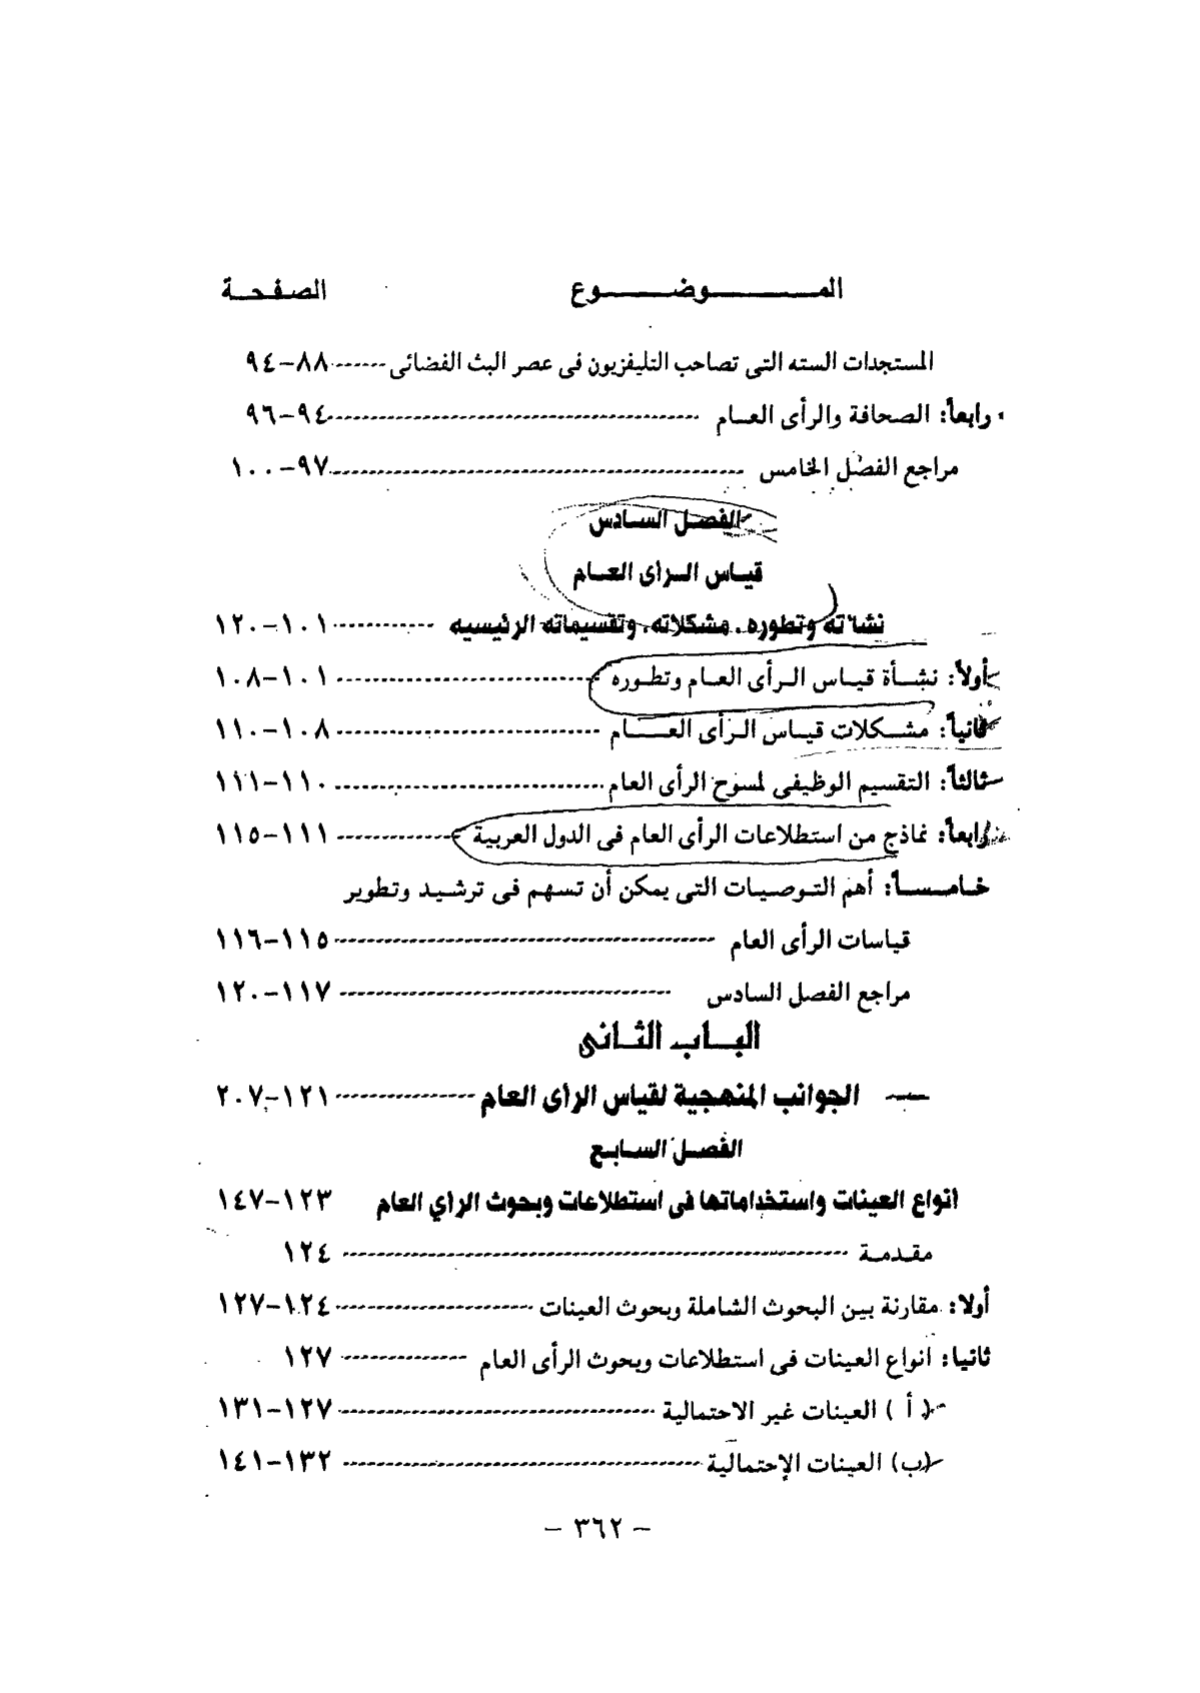 الموضوع الصفحة
المستجدات السته التى تصاحب التليفزيون فى عصر البث الفضائى ------ ٨٨-٩٤
رابعاً: الصحافة والرأى العام ------ ٩٤-٩٦
مراجع الفصل الخامس ------ ٩٧-١٠٠
الفصل السادس
قياس الرأى العام
نشأته وتطوره، مشكلاته، وتقسيماته الرئيسيه ------ ١٠١-١٢٠
أولاً: نشأة قياس الرأى العام وتطوره ------ ١٠١-١٠٨
ثانياً: مشكلات قياس الرأى العام ------ ١٠٨-١١٠
ثالثاً: التقسيم الوظيفى لمسوح الرأى العام ------ ١١٠-١١١
رابعاً: نماذج من استطلاعات الرأى العام فى الدول العربية ------ ١١١-١١٥
خامساً: أهم التوصيات التى يمكن أن تسهم فى ترشيد وتطوير
قياسات الرأى العام ------ ١١٥-١١٦
مراجع الفصل السادس ------ ١١٧-١٢٠
الباب الثانى
الجوانب المنهجية لقياس الرأى العام ------ ١٢١-٢٠٧
الفصل السابع
انواع العينات واستخداماتها فى استطلاعات وبحوث الراي العام ١٢٣-١٤٧
مقدمة ------ ١٢٤
أولا: مقارنة بين البحوث الشاملة وبحوث العينات ------ ١٢٤-١٢٧
ثانيا: انواع العينات فى استطلاعات وبحوث الرأى العام ------ ١٢٧
( أ ) العينات غير الاحتمالية ------ ١٢٧-١٣١
(ب) العينات الإحتمالية ------ ١٣٢-١٤١
- ٣٦٢ -